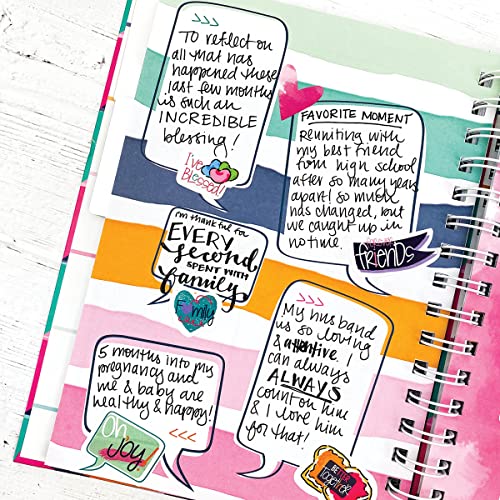 TO reflect on
all that has
happened these
last few months
is such an
INCREDIBLE
blessing!
I'm
Blessed!
FAVORITE MOMENT
Reuniting with
my best friend
from high school
after so many years
apart! So much
has changed, but
we caught up in
no time.
friends
I'm thankful for
EVERY
second
SPENT WITH
family
Family
5 months into my
pregnancy and
me & baby are
healthy & happy!
Oh
JOY
My husband
is so loving
& attentive! I
can always
ALWAYS
count on him
& I love him
for that!
BETTER
Together